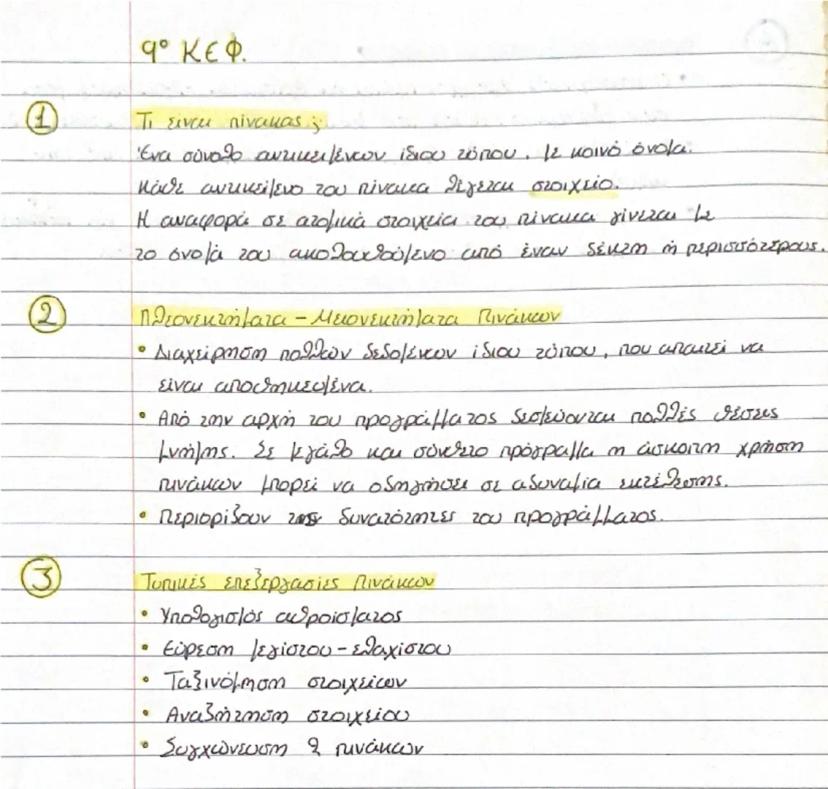 9° ΚΕΦ.
1 Τι είναι πίνακας;
Ένα σύνολο αντικειμένων ίδιου τύπου, με κοινό όνομα.
Κάθε αντικείμενο του πίνακα λέγεται στοιχείο.
Η αναφορά σε ατομικά στοιχεία του πίνακα γίνεται με
το όνομά του ακολουθούμενο από έναν δείκτη ή περισσότερους.
2 Πλεονεκτήματα - Μειονεκτήματα Πινάκων
• Διαχείρηση πολλών δεδομένων ίδιου τύπου, που απαιτεί να
είναι αποθηκευμένα.
• Από την αρχή του προγράμματος δεσμεύονται πολλές θέσεις
μνήμης. Σε μεγάλο και σύνθετο πρόγραμμα η άσκοπη χρήση
πινάκων μπορεί να οδηγήσει σε αδυναμία εκτέλεσης.
• Περιορίζουν τις δυνατότητες του προγράμματος.
3 Τυπικές επεξεργασίες Πινάκων
• Υπολογισμός αθροίσματος
• Εύρεση μεγίστου - ελαχίστου
• Ταξινόμηση στοιχείων
• Αναζήτηση στοιχείου
• Συγχώνευση 2 πινάκων